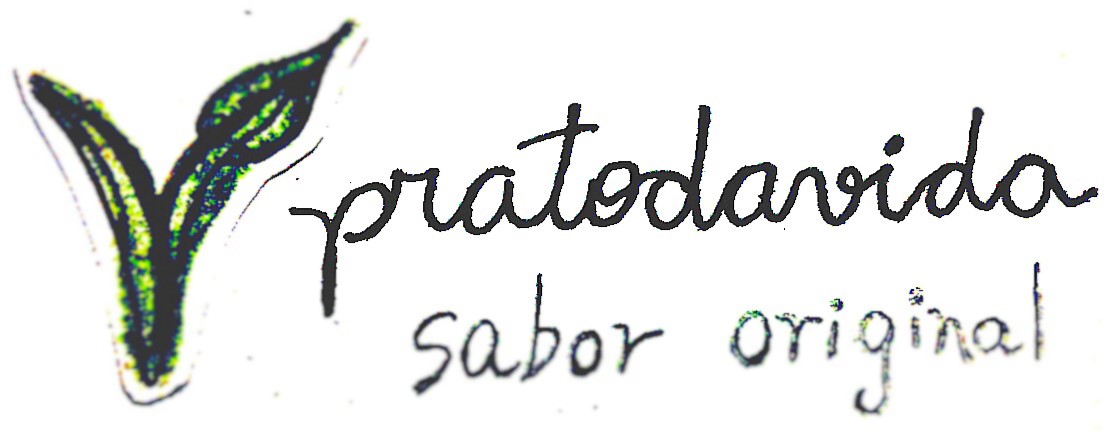 pratodavida
sabor original